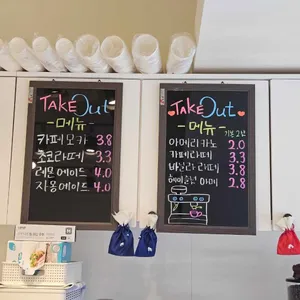 TAKE Out
-메뉴-
카페모카 3.8
초코라떼 3.3
레몬에이드 4.0
자몽에이드 4.0
TAKE Out
-메뉴- 기본2샷
아메리카노 2.0
카페라떼 3.3
바닐라 라떼 3.8
헤이즐넛 아메 2.8